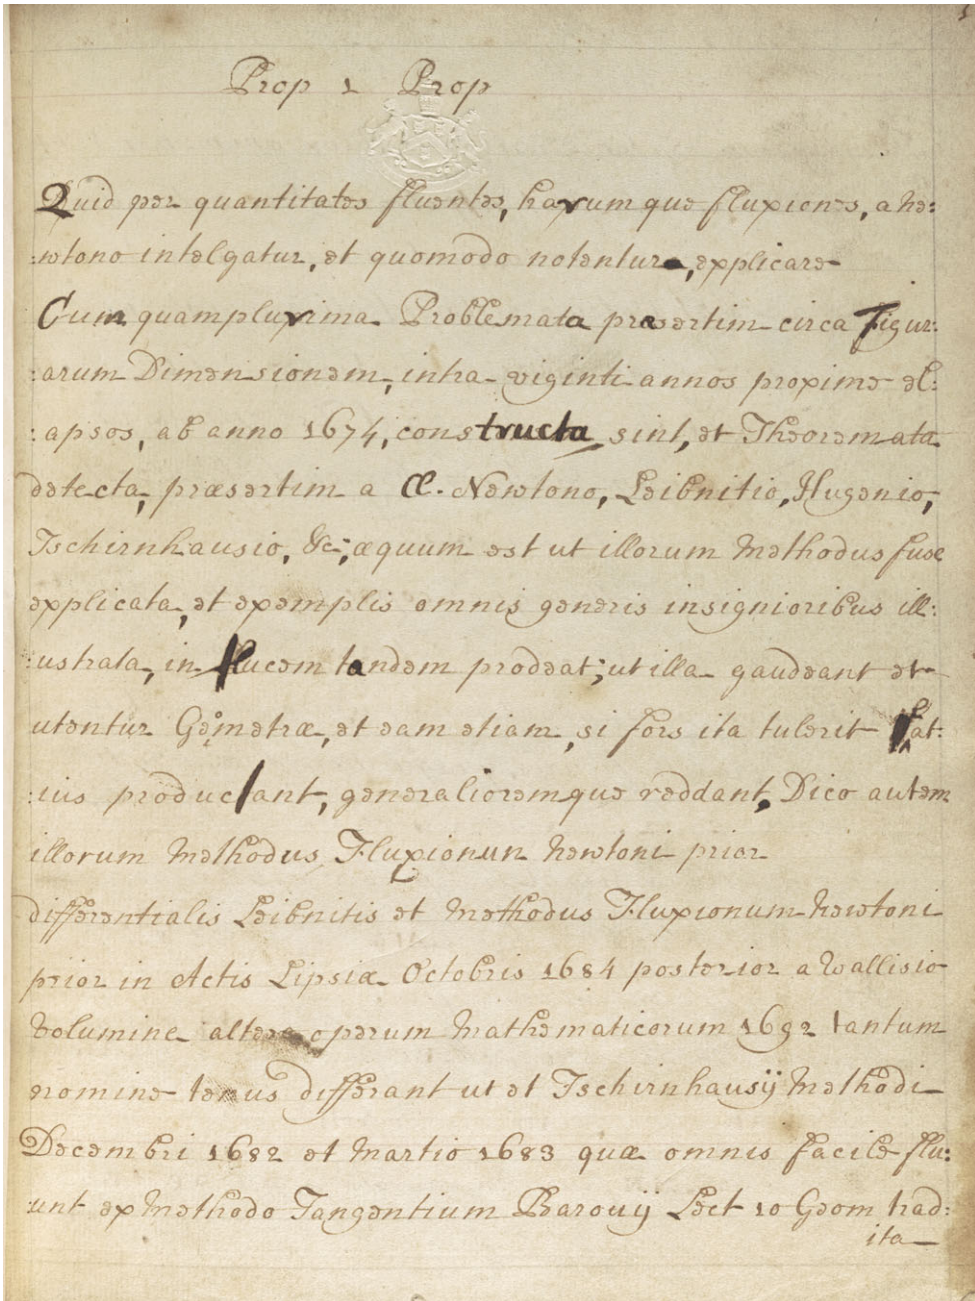 5
Prop 1 Prop
Quid per quantitates fluentes, harumque fluxiones, a Ne:
:wtono intelgatur, et quomodo notentur, explicare
Cum quamplurima Problemata praesertim circa Figur:
:arum Dimensionem, intra viginti annos proxime el:
:apsos, ab anno 1674, constructa sint, et Theoremata
detecta, præsertim a Cl. Newtono, Leibnitio, Hugenio,
Tschirnhausio, &c; æquum est ut illorum Methodus fuse
explicata, et exemplis omnis generis insignioribus ill:
:ustrata, in lucem tandem prodeat; ut illa gaudeant et
utentur Geometræ, et eam etiam, si fors ita tulerit lat:
:ius producant, generalioremque reddant, Dico autem
illorum Methodus Fluxionun Newtoni prior
differentialis Leibnitis et Methodus Fluxionum Newtoni
prior in Actis Lipsiæ Octobris 1684 posterior a Wallisio
Volumine altero operum Mathematicorum 1692 tantum
nomine tenus differant ut et Tschirnhausij Methodi
Decembri 1682 et Martio 1683 quæ omnis facile flu:
:unt ex Methodo Tangentium Barouij Lect 10 Geom trad:
ita